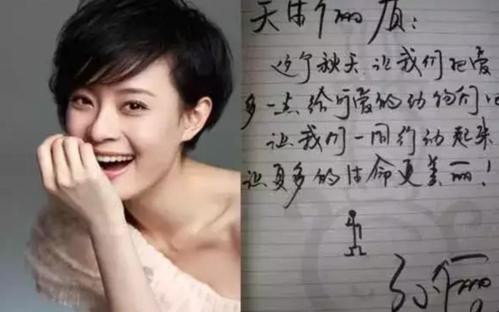 这个秋天让我们把爱
多一点给可爱的动物们吧
让我们一同行动起来
让更多的生命更美丽!